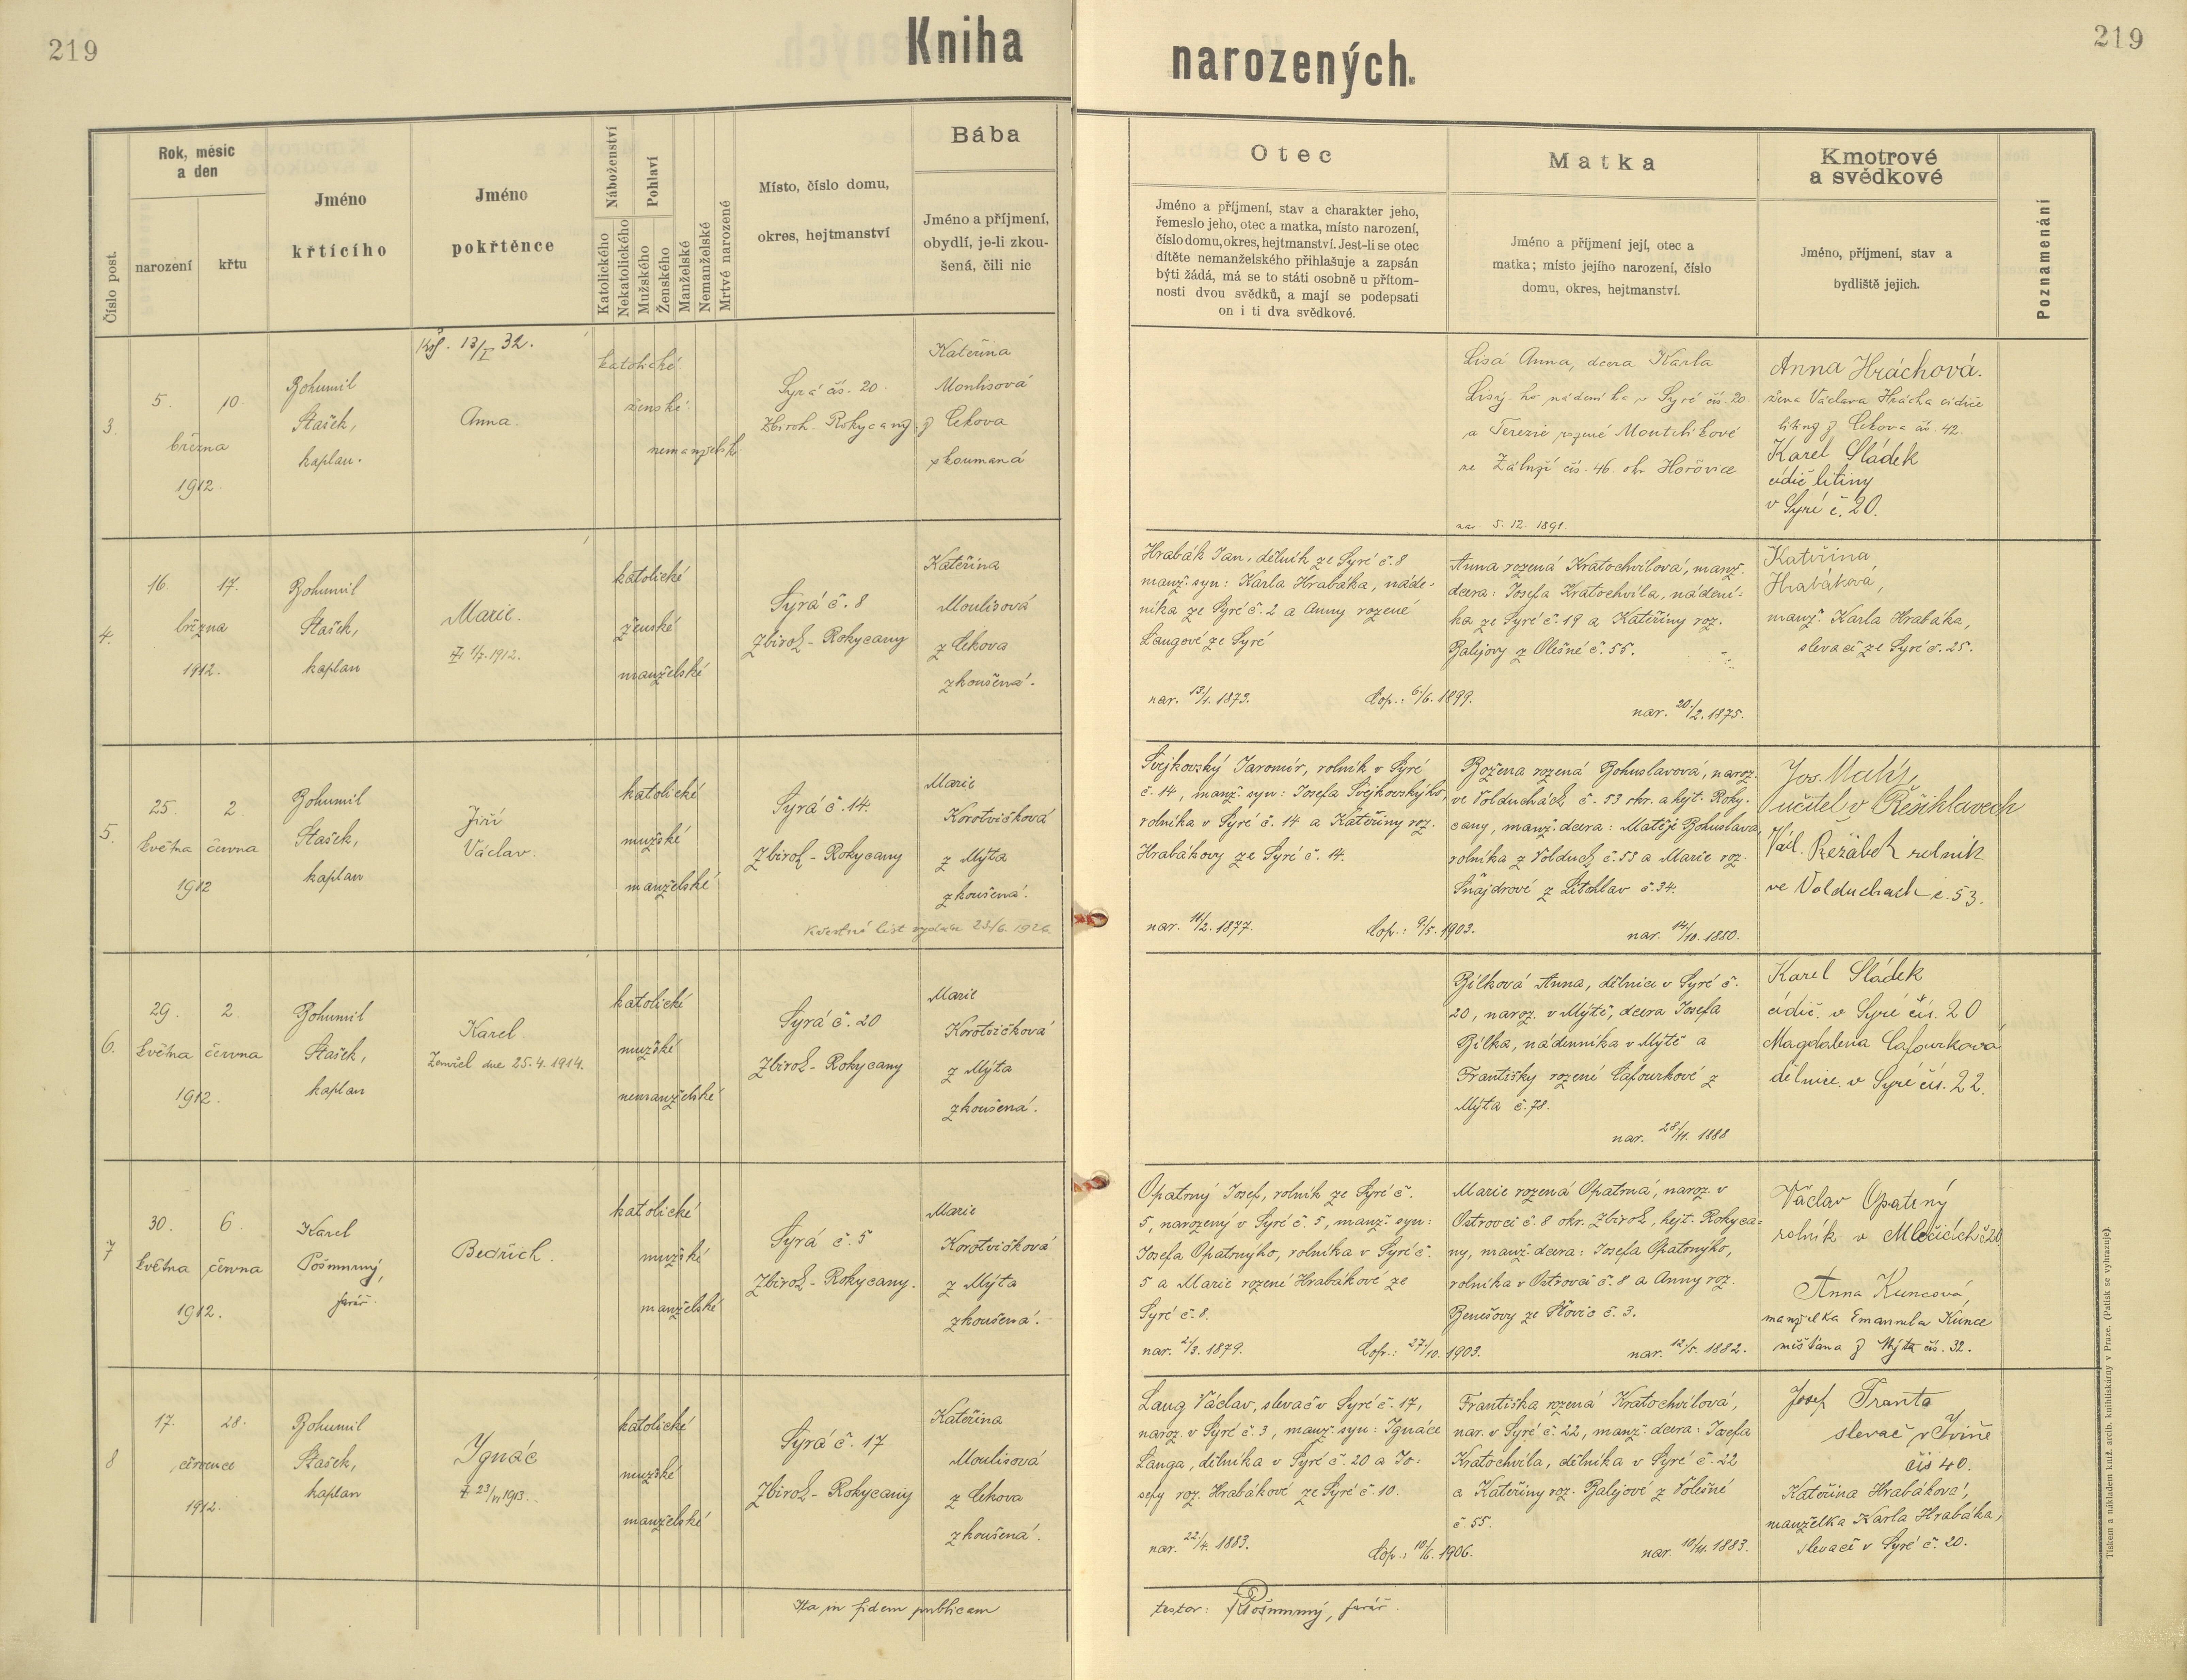 219
Kniha
narozených.
219
Číslo post.
Rok, měsíc
a den
narození
křtu
Jméno
křtícího
Jméno
pokřtěnce
Náboženství
Katolického
Nekatolického
Pohlaví
Mužského
Ženského
Manželské
Nemanželské
Mrtvě narozené
Místo, číslo domu,
okres, hejtmanství
Bába
Jméno a příjmení,
obydlí, je-li zkou-
šená, čili nic
Otec
Jméno a příjmení, stav a charakter jeho,
řemeslo jeho, otec a matka, místo narození,
číslo domu, okres, hejtmanství. Jest-li se otec
dítěte nemanželského přihlašuje a zapsán
býti žádá, má se to státi osobně u přítom-
nosti dvou svědků, a mají se podepsati
on i ti dva svědkové.
Matka
Jméno a příjmení její, otec a
matka; místo jejího narození, číslo
domu, okres, hejtmanství.
Kmotrové
a svědkové
Jméno, příjmení, stav a
bydliště jejich.
Poznamenání
3.
5.
10.
března
1912.
Bohumil
Stašek,
kaplan.
13/I 32.
Anna.
katolické
ženské
nemanželsk
Syrá čís. 20.
Zbiroh - Rokycany
Kateřina
Moulisová
z Cekova
zkoumaná
Lisá Anna, dcera Karla
Lisý-ho nádeníka v Syré čís. 20
a Terezie rozené
ze Zálúží čís. 46. okr. Hořovice
nar. 5. 12. 1891.
Anna Hráchová.
žena Václava Hrácha cídiče
litiny z Cekova čís. 42.
Karel Sládek
cídič litiny
v Syré č. 20.
4.
16
17.
března
1912.
Bohumil
Stašek,
kaplan
Marie.
1/7. 1912.
katolické
ženské
manželské
Syrá č. 8
Zbiroh - Rokycany
Kateřina
Moulisová
z Cekova
zkoušená.
Hrabák Jan, dělník ze Syré č. 8
manž. syn: Karla Hrabáka, náde-
níka ze Syré č. 2 a Anny rozené
Langové ze Syré
nar. 13/1. 1873.
Cop.: 6/6. 1899.
Anna rozená Kratochvílová, manž.
dcera: Josefa Kratochvíla, nádení-
ka ze Syré č. 19 a Kateřiny roz.
Balejovy z Olešné č. 55.
nar. 20/2. 1875.
Kateřina
Hrabáková,
manž. Karla Hrabáka,
slevače ze Syré č. 25.
5.
25
2.
května
června
1912
Bohumil
Stašek,
kaplan
Jiří
Václav.
katolické
mužské
manželské
Syrá č. 14.
Zbiroh - Rokycany
Marie
Korotvičková
z Mýta
zkoušená.
Křestní list vydán 23/6 1926.
Švejkovský Jaromír, rolník v Syré
č. 14, manž. syn: Josefa Švejkovského,
rolníka v Syré č. 14 a Kateřiny roz.
Hrabákovy ze Syré č. 14.
nar. 11/2. 1877.
Cop.: 9/5. 1903.
Božena rozená Bohuslavová, naroz.
ve Volduchách, č. 53 okr. a hejt. Roky-
cany, manž. dcera: Matěje Bohuslava,
rolníka z Volduch č. 53 a Marie roz.
Šnajdrové z Litohlav č. 34.
nar. 14/10. 1880.
Jos. Malý,
učitel v Řešihlavech
Václ. Řežábek rolník
ve Volduchach č. 53.
6.
29.
2.
května
června
1912.
Bohumil
Stašek,
kaplan
Karel
Zemřel dne 25. 4. 1914.
katolické
mužské
nemanželské
Syrá č. 20
Zbiroh - Rokycany
Marie
Korotvičková
z Mýta
zkoušená.
Bílková Anna, dělnice v Syré č.
20, naroz. v Mýtě, dcera Josefa
Bílka, nádenníka v Mýtě a
Františky rozené Cafourkové z
Mýta č. 78.
nar. 28/11. 1888
Karel Sládek
cídič. v Syré čís. 20
Magdalena Cafourková
dělnice. v Syré čís. 22.
7
30.
6.
května
června
1912.
Karel
Pošmurný,
farář.
Bedřich.
katolické
mužské
manželské
Syrá č. 5
Zbiroh - Rokycany.
Marie
Korotvičková
z Mýta
zkoušená.
Opatrný Josef, rolník ze Syré č.
5, narozený v Syré č. 5, manž. syn:
Josefa Opatrného, rolníka v Syré č.
5 a Marie rozené Hrabákové ze
Syré č. 8.
nar. 2/3. 1879.
Cop.: 27/10. 1903.
Marie rozená Opatrná, naroz. v
Ostrovci č. 8 okr. Zbiroh, hejt. Rokyca-
ny, manž. dcera: Josefa Opatrného,
rolníka v Ostrovci č. 8 a Anny roz.
Benešovy ze č. 3.
nar. 12/5. 1882.
Václav Opatrný
rolník v Mlečicích č 20
Anna Kuncová,
manželka Emanuela Kunce
měšťana z Mýta čís. 32.
8
17.
28.
července
1912.
Bohumil
Stašek,
kaplan
Ignác
23/VI 1913.
katolické
mužské
manželské
Syrá č. 17
Zbiroh - Rokycany
Kateřina
Moulisová
z Cekova
zkoušená.
Lang Václav, slevač v Syré č. 17,
naroz. v Syré č. 3, manž. syn: Ignáce
Langa, dělníka v Syré č. 20 a Jo-
sefy roz. Hrabákové ze Syré č. 10.
nar. 22/4. 1883.
Cop.: 10/6. 1906.
Františka rozená Kratochvílová,
nar. v Syré č. 22, manž. dcera: Josefa
Kratochvíla, dělníka v Syré č. 22
a Kateřiny roz. Balejové z Volešné
č. 55.
nar. 10/11. 1883.
Josef Franta
slevač
čís 40.
Kateřina Hrabáková,
manželka Karla Hrabáka,
slevače v Syré č. 20.
Ita in fidem publicam
testor: Pošmurný, farář.
Tiskem a nákladem kníž. arcib. knihtiskárny v Praze. (Patisk se vyhrazuje).